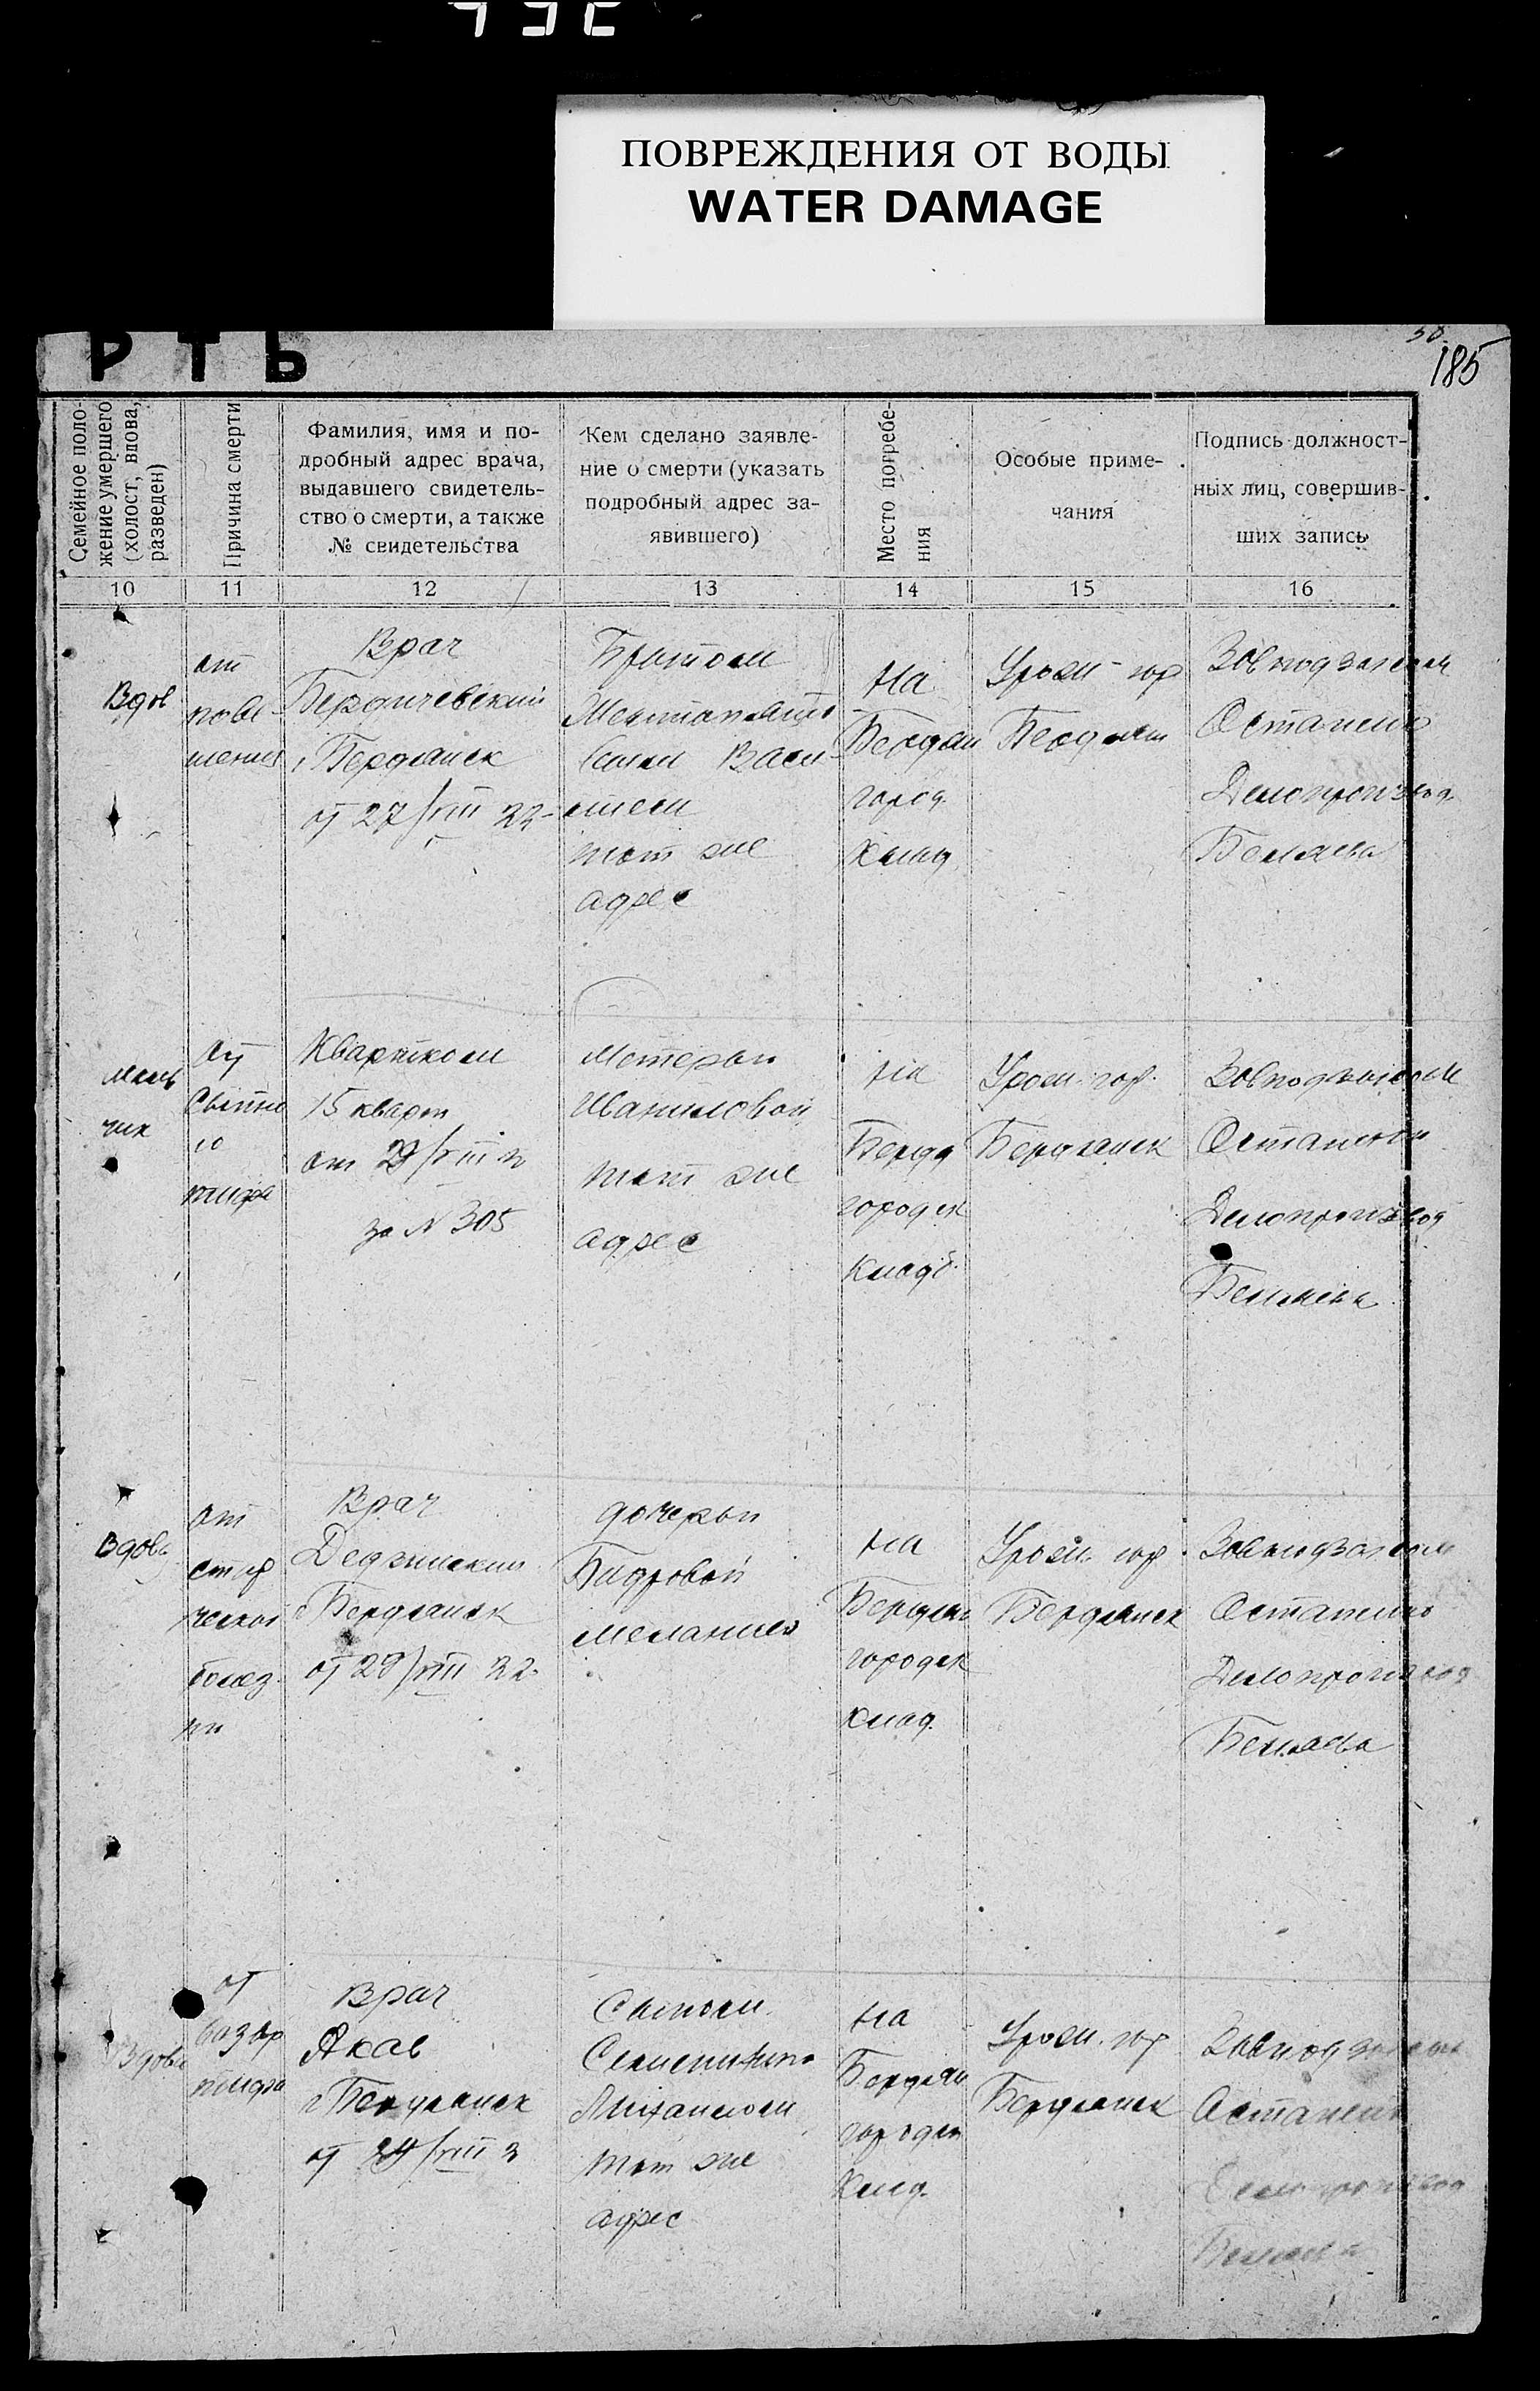 ПОВРЕЖДЕНИЯ ОТ ВОДЫ
WATER DAMAGE
РТЬ
185
Семейное поло-
жение умершего
(холост, вдова,
разведен)
Причина смерти
Фамилия, имя и по-
дробный адрес врача,
выдавшего свидетель-
ство о смерти, а также
№ свидетельства
Кем сделано заявле-
ние о смерти (указать
подробный адрес за-
явившего)
Место погребе-
ния
Особые приме-
чания
Подпись должност-
ных лиц, совершив-
ших запись
10 11 12 13 14 15 16
Вдов
от
пове-
шения
Врач
Бердичевский
г Бердянск
от 27/VIII 22
Братом
Васи-
лием
тот же
адрес
На
Бердян
город.
клад
Урож гор
Бердянск
Завподзагсом
Остапенко
Делопроизвод
Беляева
маль
чик
от
сыпно
го
тифа
Квартком
15 кварт
от 29/VIII 22
за N 305
Матерью
тот же
адрес
на
Бердя
городск
кладб.
Урож. гор.
Бердянск
Завподзагсом
Остапенко
Делопроизвод
Беляева
Вдова
от
старческой
болез
ни
Врач
г Бердянск
от 29/VIII 22
дочерью
Меланией
на
Бердянс
городск
клад.
Урож. гор.
Бердянск
Завподзагсом
Остапенко
Делопроизвод
Беляева
Вдова
от
возвр
тифа
Врач
Яков
г Бердянск
от 29/VIII 2
Сыном
Михаилом
тот же
адрес
на
Бердян
городск
клад.
Урож. гор
Бердянск
Завподзагсом
Остапенко
Делопроизвод
Беляева